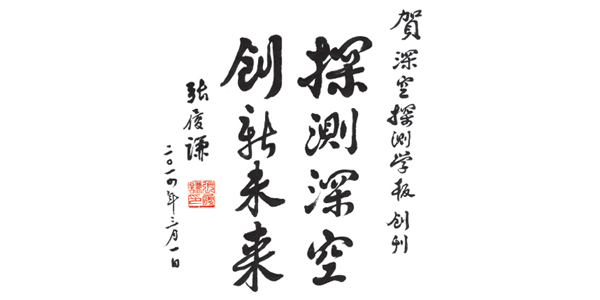 賀深空探测学报创刊
探测深空
创新未来
张履谦
二〇一四年三月一日